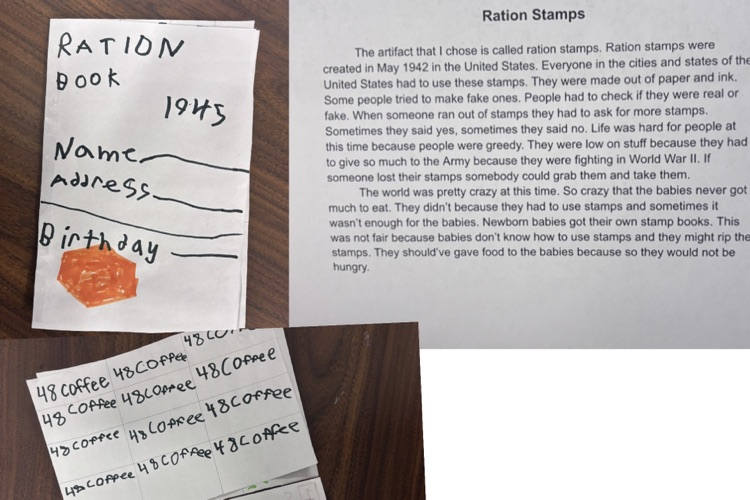 RATION
BOOK
1945
Name
Address
Birthday
Ration Stamps
The artifact that I chose is called ration stamps. Ration stamps were
created in May 1942 in the United States. Everyone in the cities and states of the
United States had to use these stamps. They were made out of paper and ink.
Some people tried to make fake ones. People had to check if they were real or
fake. When someone ran out of stamps they had to ask for more stamps.
Sometimes they said yes, sometimes they said no. Life was hard for people at
this time because people were greedy. They were low on stuff because they had
to give so much to the Army because they were fighting in World War II. If
someone lost their stamps somebody could grab them and take them.
The world was pretty crazy at this time. So crazy that the babies never got
much to eat. They didn't because they had to use stamps and sometimes it
wasn't enough for the babies. Newborn babies got their own stamp books. This
was not fair because babies don't know how to use stamps and they might rip the
stamps. They should've gave food to the babies because so they would not be
hungry.
48 Coffee 48 Coffee 48 Co
48 Coffee 48 Coffee 48 Coffee
48 Coffee 48 Coffee 48 Coffee
48 Coffee 48 Coffee 48 Coffee